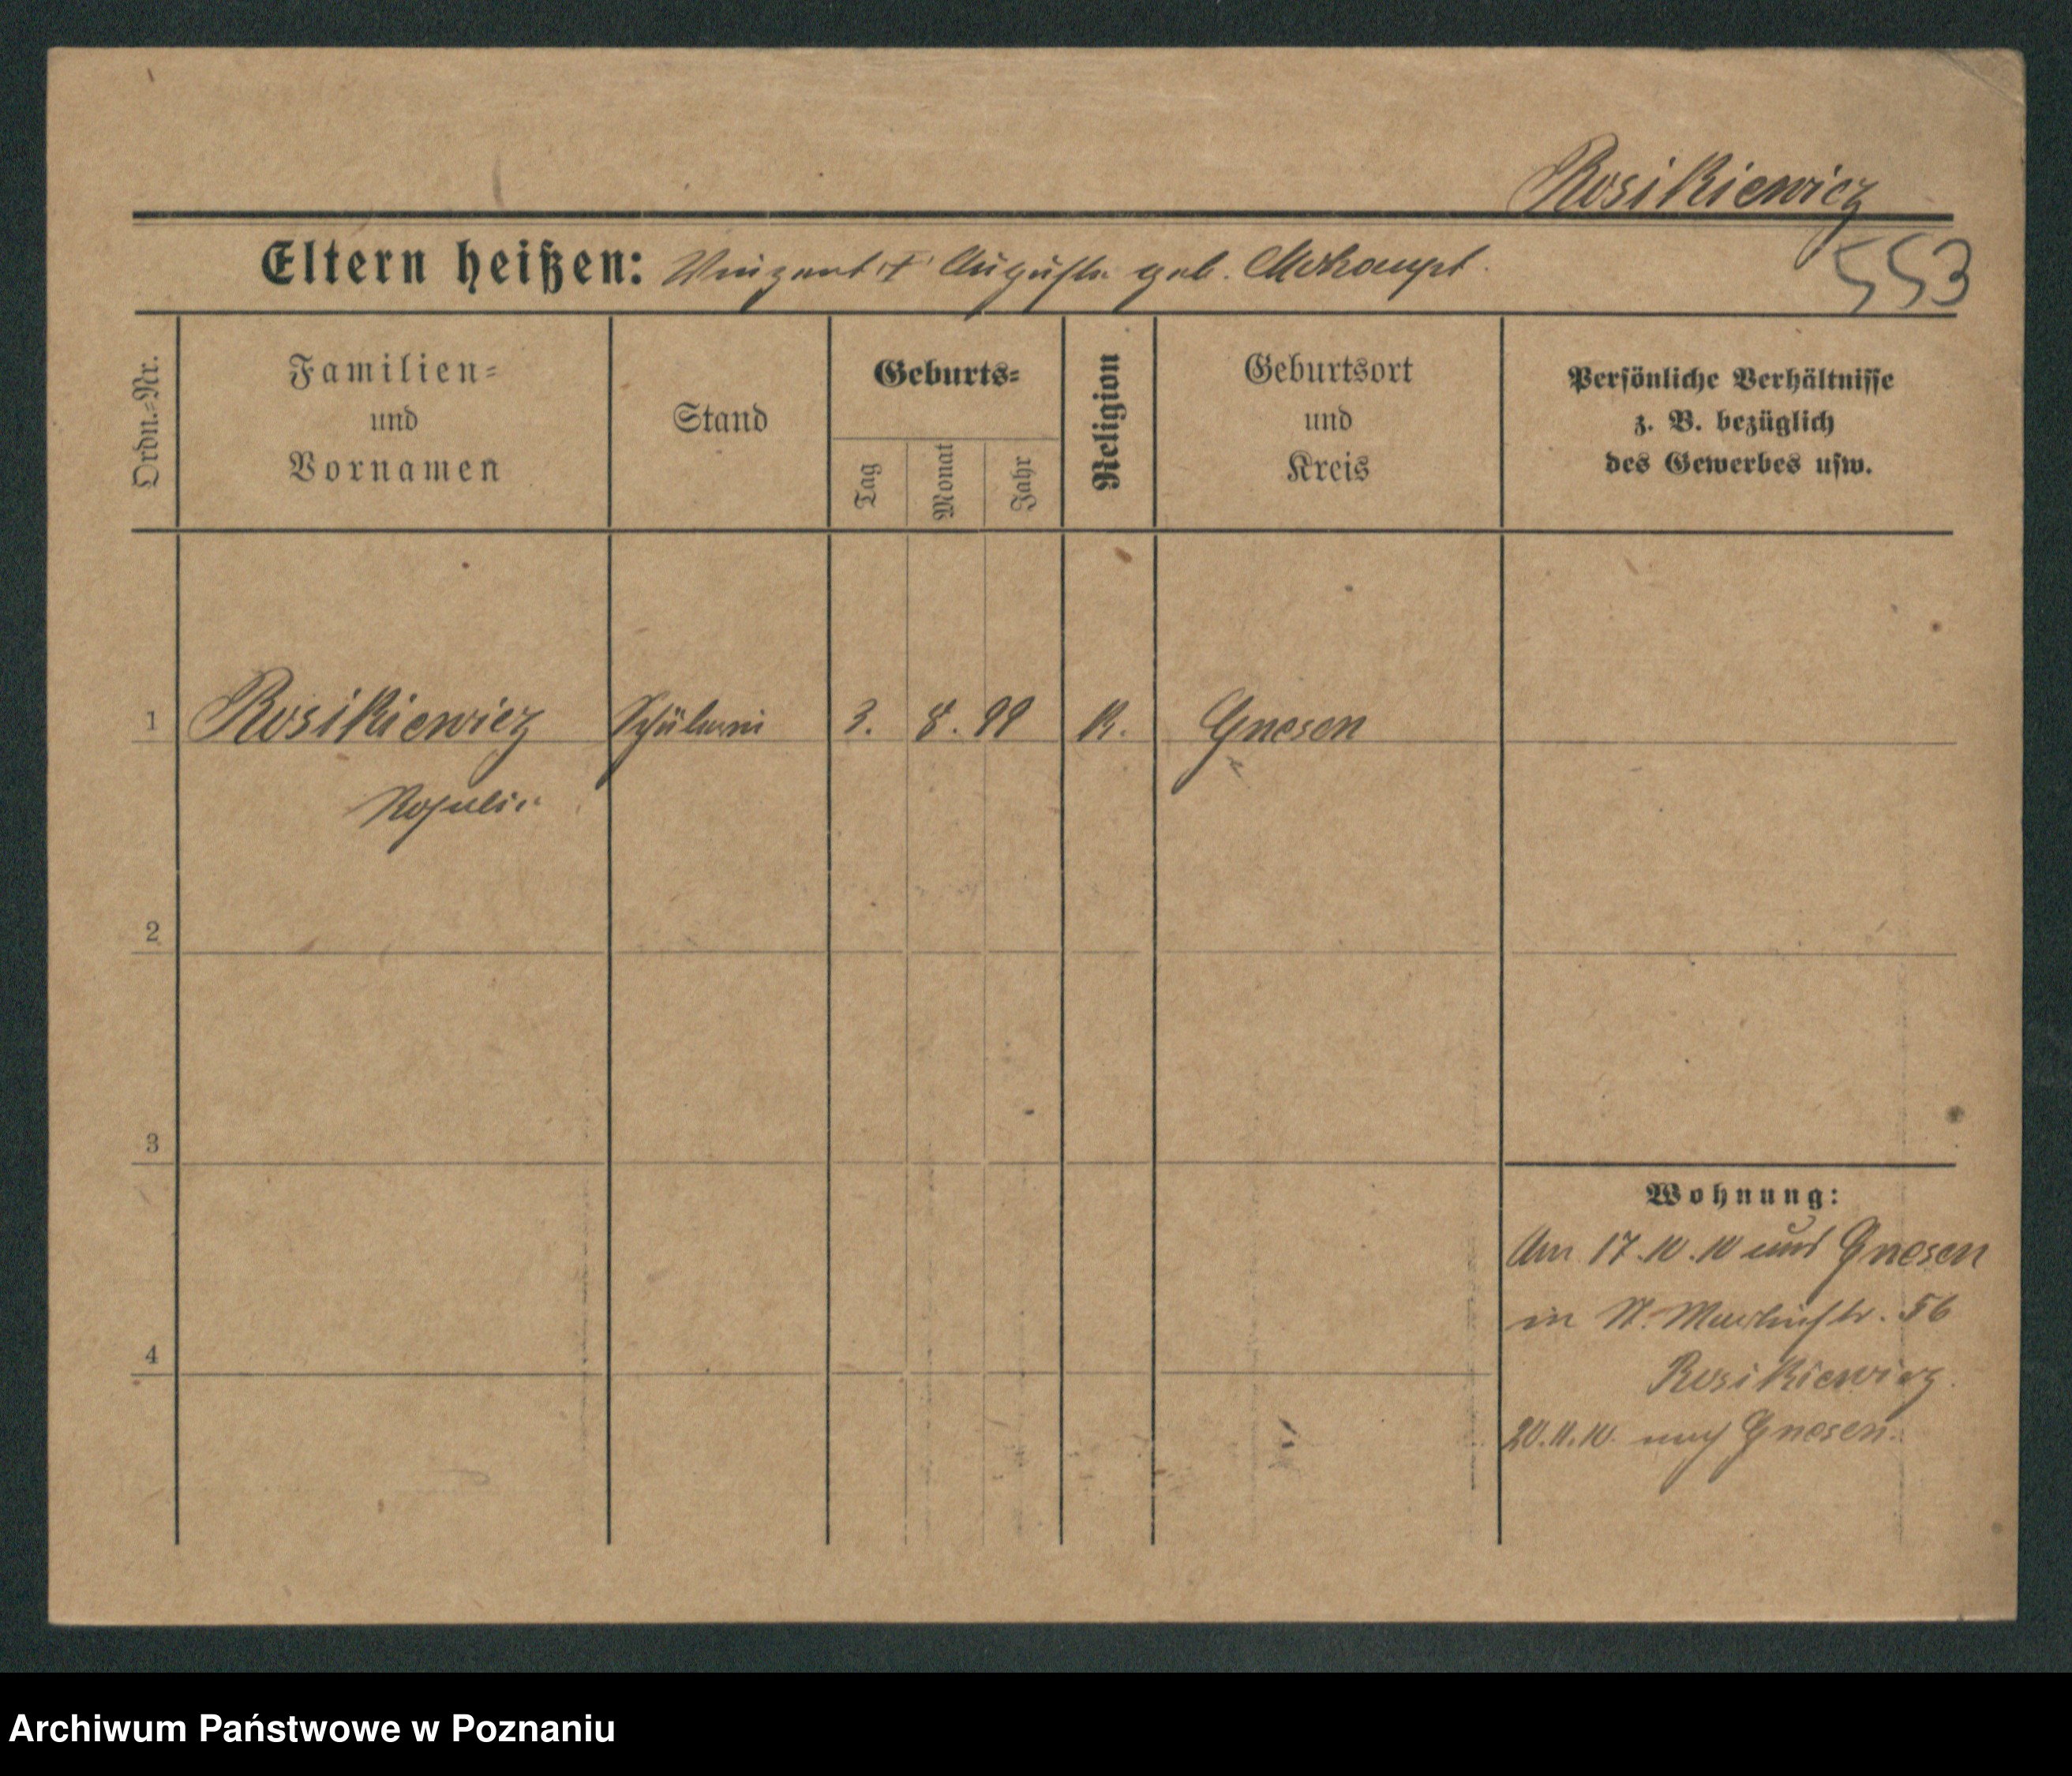 Rosikiewicz
Eltern heißen: Vinzent † Auguste geb.
553
Ordn.-Nr.
Familien-
und
Vornamen
Stand
Geburts-
Tag
Monat
Jahr
Religion
Geburtsort
und
Kreis
Persönliche Verhältnisse
z. B. bezüglich
des Gewerbes usw.
1 Rosikiewicz Schülerin 3. 8. 99 K. Gnesen
Rosalie
2
3
4
Wohnung:
Am 17.10.10 aus Gnesen
in St. Martinstr. 56
Rosikiewicz.
20.11.10. nach Gnesen.
Archiwum Państwowe w Poznaniu